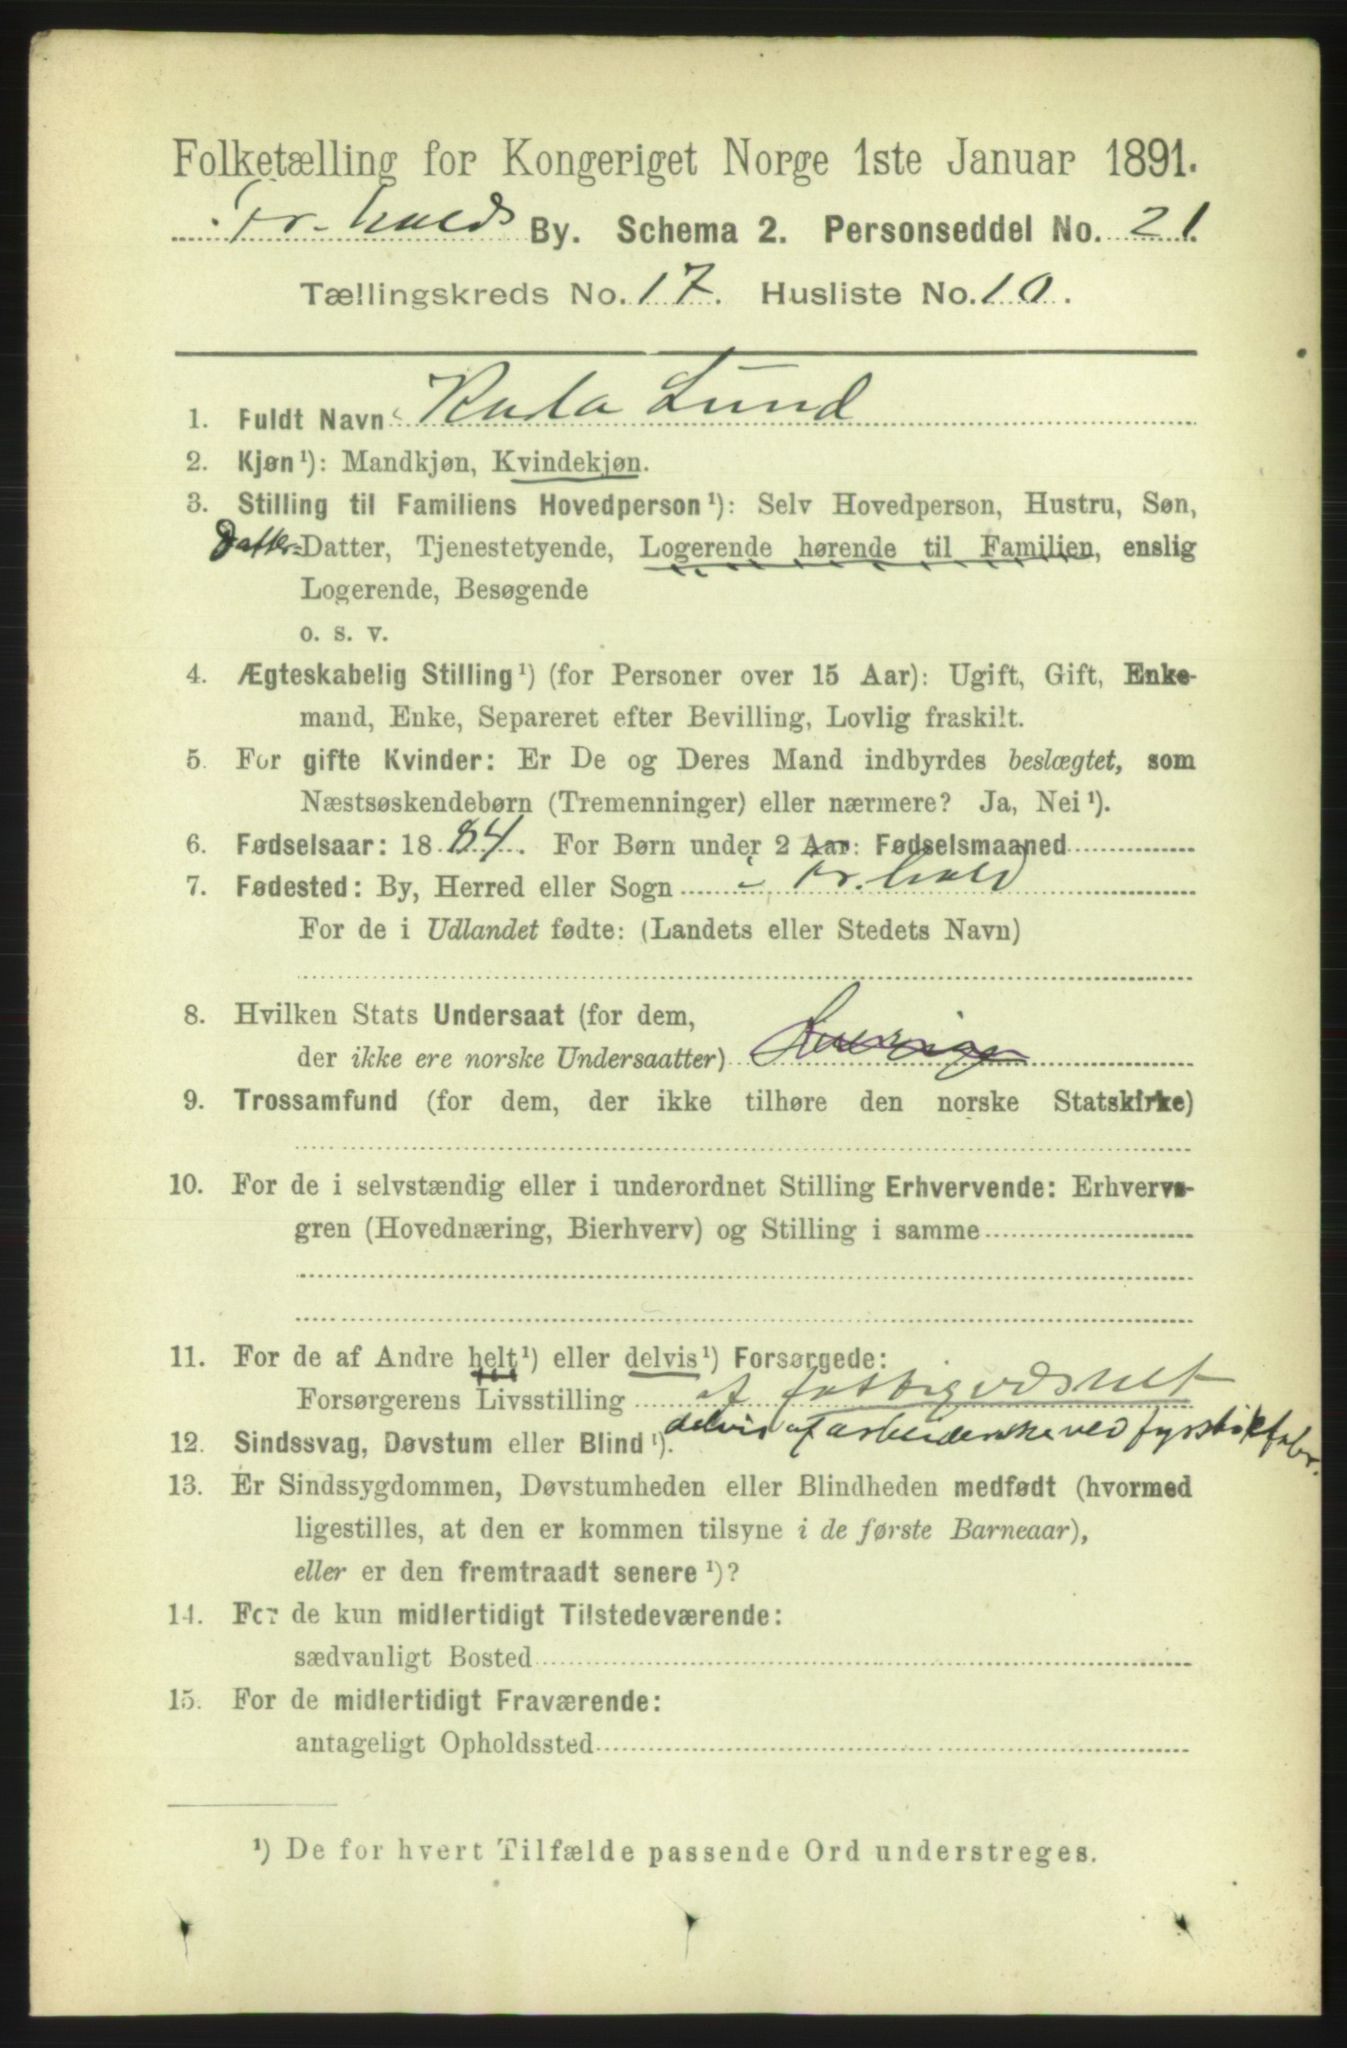 Folketælling for Kongeriget Norge 1ste Januar 1891.
Fr.halds By. Schema 2. Personseddel No. 21.
Tællingskreds No. 17. Husliste No. 10.
1. Fuldt Navn Lund
2. Kjøn¹): Mandkjøn, Kvindekjøn.
3. Stilling til Familiens Hovedperson¹): Selv Hovedperson, Hustru, Søn,
Datter- Datter, Tjenestetyende, Logerende hørende til Familien, enslig
Logerende, Besøgende
o. s. v.
4. Ægteskabelig Stilling¹) (for Personer over 15 Aar): Ugift, Gift, Enke-
mand, Enke, Separeret efter Bevilling, Lovlig fraskilt.
5. For gifte Kvinder: Er De og Deres Mand indbyrdes beslægtet, som
Næstsøskendebørn (Tremenninger) eller nærmere? Ja, Nei¹).
6. Fødselsaar: 1884. For Børn under 2 Aar: Fødselsmaaned
7. Fødested: By, Herred eller Sogn i Fr.hald
For de i Udlandet fødte: (Landets eller Stedets Navn)
8. Hvilken Stats Undersaat (for dem,
der ikke ere norske Undersaatter) Sverige
9. Trossamfund (for dem, der ikke tilhøre den norske Statskirke)
10. For de i selvstændig eller i underordnet Stilling Erhvervende: Erhvervs-
gren (Hovednæring, Bierhverv) og Stilling i samme
11. For de af Andre helt¹) eller delvis¹) Forsørgede:
Forsørgerens Livsstilling af fattigvæsnet
delvis af arbeiderske ved fyrstikfabr.
12. Sindssvag, Døvstum eller Blind¹).
13. Er Sindssygdommen, Døvstumheden eller Blindheden medfødt (hvormed
ligestilles, at den er kommen tilsyne i de første Barneaar),
eller er den fremtraadt senere¹)?
14. For de kun midlertidigt Tilstedeværende:
sædvanligt Bosted
15. For de midlertidigt Fraværende:
antageligt Opholdssted
¹) De for hvert Tilfælde passende Ord understreges.